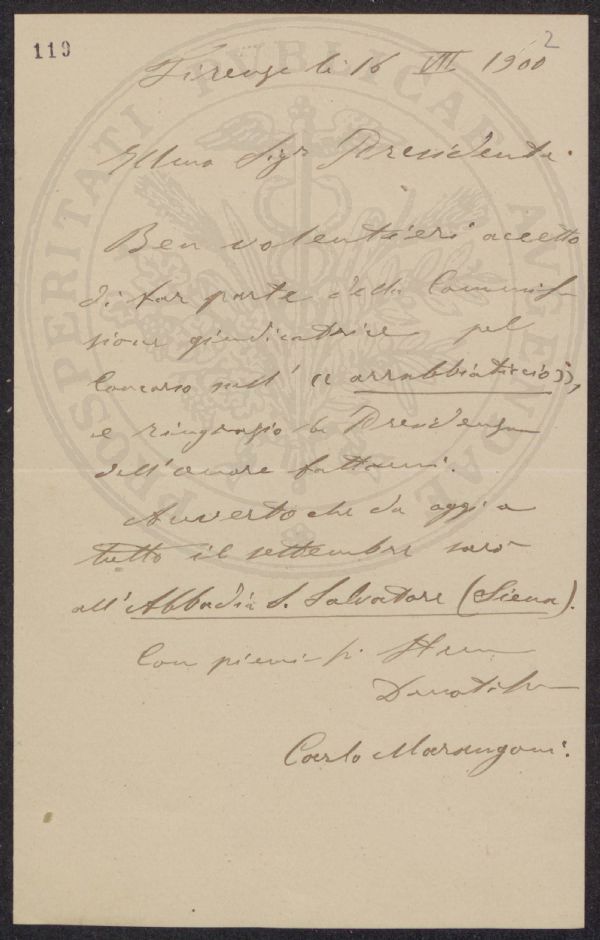 119
2
Firenze li 16 VII 1900
Illmo Sigr Presidente.
Ben volentieri accetto
di far parte della Commis-
sione giudicatrice pel
Concorso sull' « arrabbiaticcio »,
e ringrazio la Presidenza
dell'onore fattomi.
Avverto che da oggi a
tutto il settembre sarò
all'Abbadia S. Salvatore (Siena).
Con pienissi Stima
Devotissimo
Carlo Marangoni.
PROSPERITATI PUBLICAE AUGENDAE